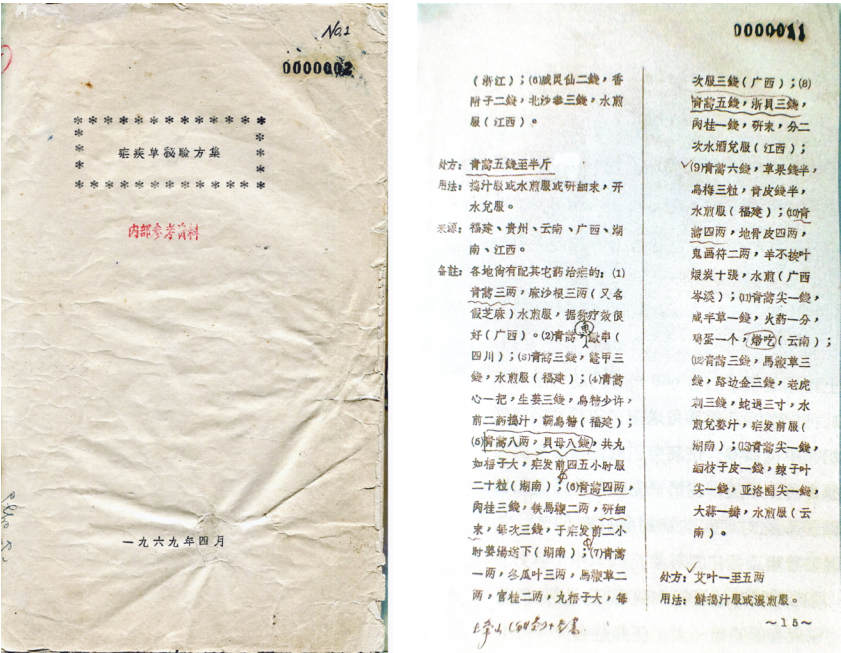 No.1
0000002
疟疾单秘验方集
内部参考资料
一九六九年四月
0000011
(浙江);(6)威灵仙二錢,香
附子二錢,北沙参三錢,水煎
服(江西)。
处方:青蒿五錢至半斤
用法:搗汁服或水煎服或研細末,开
水兌服。
来源:福建、贵州、云南、广西、湖
南、江西。
备註:各地尙有配其它药治疟的:(1)
青蒿三两,麻沙根三两(又名
假芝麻)水煎服,据称疗效很
好(广西)。(2)青蒿,鱉甲(
四川);(3)青蒿三錢,鼈甲三
錢,水煎服(福建);(4)青蒿
心一把,生姜三錢,烏糖少许,
前二药搗汁,調烏糖(福建);
(5)青蒿八两,貝母八錢,共丸
如梧子大,疟发前四五小时服
二十粒(湖南);(6)青蒿四两,
肉桂三錢,铁馬鞭二两,研細
末,每次三錢,于疟发前二小
时姜湯送下(湖南);(7)青蒿
一两,冬瓜叶三两,馬鞭草二
两,官桂二两,丸梧子大,每
次服三錢(广西);(8)
青蒿五錢,浙貝三錢,
肉桂一錢,研末,分二
次水酒兌服(江西);
(9)青蒿六錢,草果錢半,
烏梅三粒,青皮錢半,
水煎服(福建);(10)青
蒿四两,地骨皮四两,
鬼画符二两,羊不挨叶
煅炭十張,水煎(广西
岑溪);(11)青蒿尖一錢,
咸辛草一錢,火葯一分,
鸡蛋一个,烙吃(云南);
(12)青蒿三錢,馬鞭草三
錢,路边金三錢,老虎
刺三錢,蛇退三寸,水
煎兌姜汁,疟发前服(
湖南);(13)青蒿尖一錢,
緬枝子皮一錢,辣子叶
尖一錢,亚洛囡尖一錢,
大蒜一瓣,水煎服(云
南)。
处方:艾叶一至五两
用法:鮮搗汁服或濃煎服。
~15~